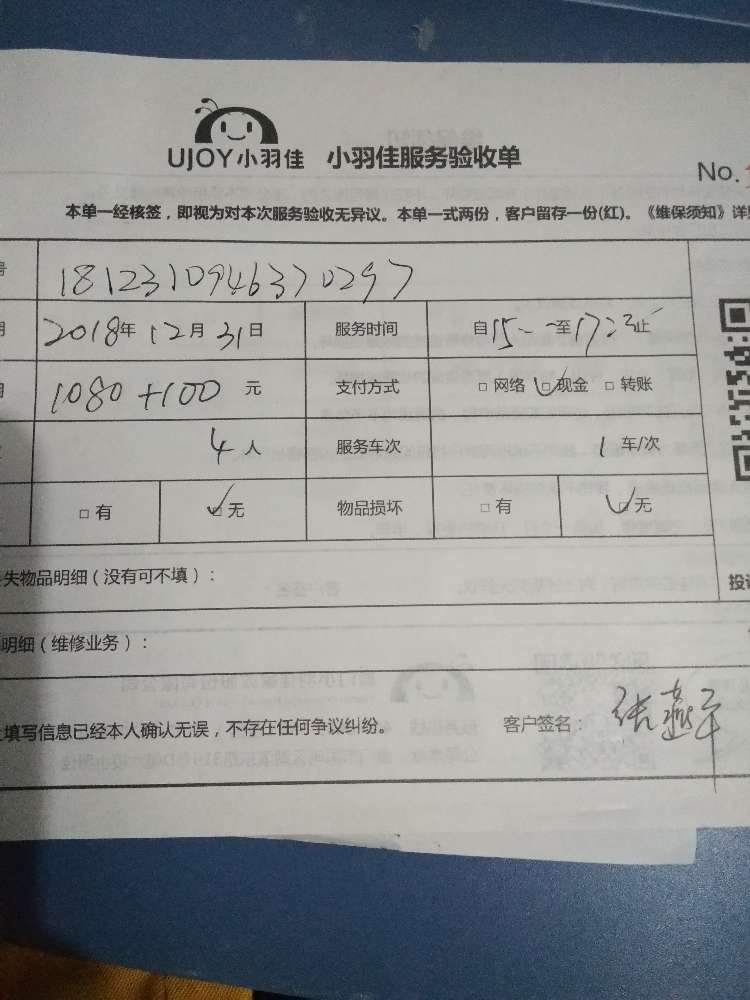 UJOY小羽佳 小羽佳服务验收单
No.
本单一经核签,即视为对本次服务验收无异议。本单一式两份,客户留存一份(红)。《维保须知》详
号 1812310946370297
期 2018年12月31日 服务时间 自15--至17:3止
用 1080+100 元 支付方式 □网络 □✓现金 □转账
4人 服务车次 1车/次
□有 ✓□无 物品损坏 □有 ✓□无
失物品明细(没有可不填):
投诉
明细(维修业务):
填写信息已经本人确认无误,不存在任何争议纠纷。 客户签名:张燕平